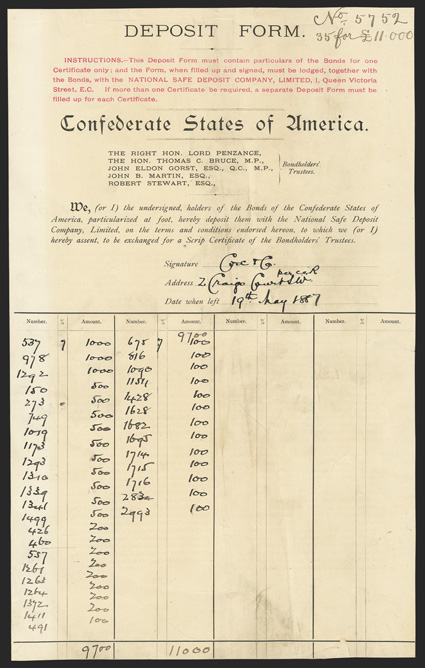 DEPOSIT FORM.
No. 5752
35 for £11000
INSTRUCTIONS.—This Deposit Form must contain particulars of the Bonds for one
Certificate only; and the Form, when filled up and signed, must be lodged, together with
the Bonds, with the NATIONAL SAFE DEPOSIT COMPANY, LIMITED, 1, Queen Victoria
Street, E.C. If more than one Certificate be required, a separate Deposit Form must be
filled up for each Certificate.
Confederate States of America.
THE RIGHT HON. LORD PENZANCE,
THE HON. THOMAS C. BRUCE, M.P.,
JOHN ELDON GORST, ESQ., Q.C., M.P.,
JOHN B. MARTIN, ESQ.,
ROBERT STEWART, ESQ.,
Bondholders'
Trustees.
We, (or I) the undersigned, holders of the Bonds of the Confederate States of
America, particularized at foot, hereby deposit them with the National Safe Deposit
Company, Limited, on the terms and conditions endorsed hereon, to which we (or I)
hereby assent, to be exchanged for a Scrip Certificate of the Bondholders' Trustees.
Signature Cox & Co.
Address Craigs Court SW
Date when left 19th May 1887
Number. % Amount. Number. % Amount. Number. % Amount. Number. % Amount.
9700
537 7 1000 675 7 100
978 1000 816 100
1292 1000 1090 100
150 500 1154 100
273 500 1428 100
749 500 1628 100
1019 500 1682 100
1173 500 1695 100
1293 500 1714 100
1310 500 1715 100
1339 500 1716 100
1346 500 100
1499 500 2993 100
426 200
460 200
537 200
1261 200
1263 200
1264 200
1392 200
1411 200
491 100
9700 11000